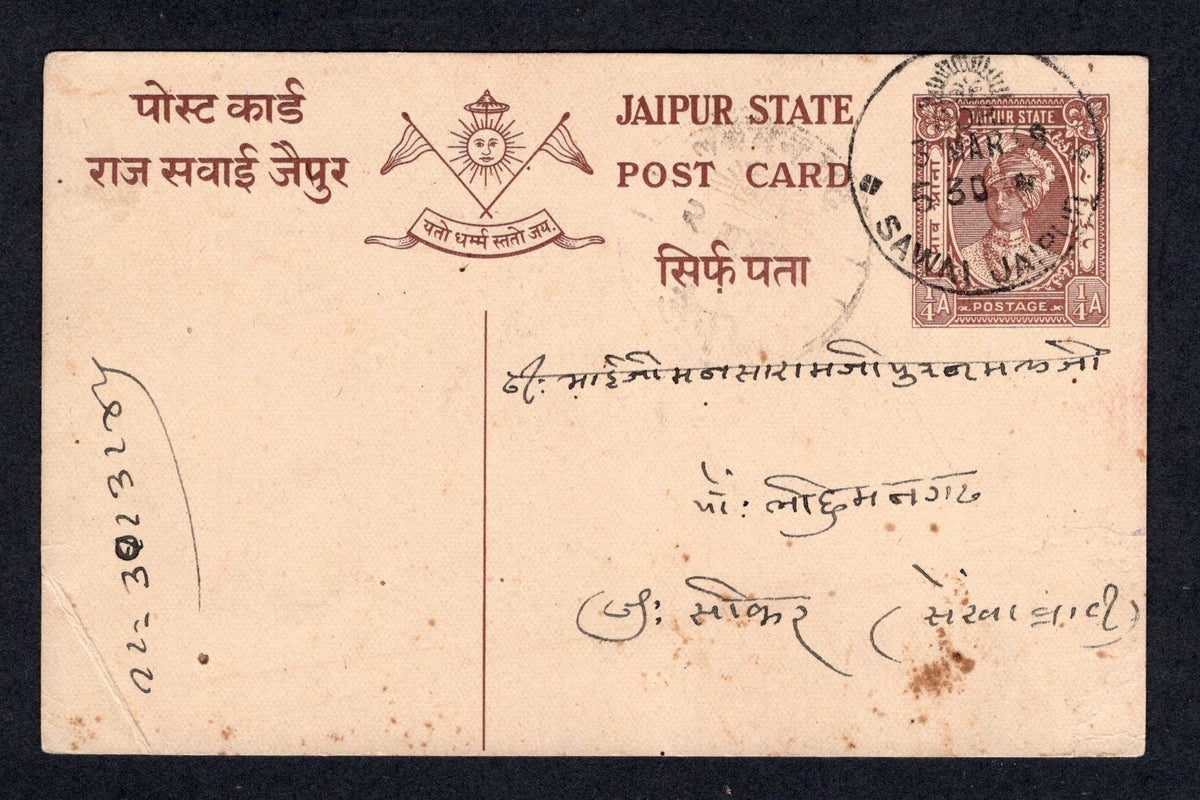 पोस्ट कार्ड
राज सवाई जैपुर
यतो धर्म्म स्ततो जय.
JAIPUR STATE
POST CARD
सिर्फ़ पता
JAIPUR STATE
POSTAGE
1/4 A
1/4 A
MAR
30
SAWAI JAIPUR
भाईजी मनसारामजी पुरनमलजी
पो: लछिमनगढ
जी: सीकर (सेखावाटी)